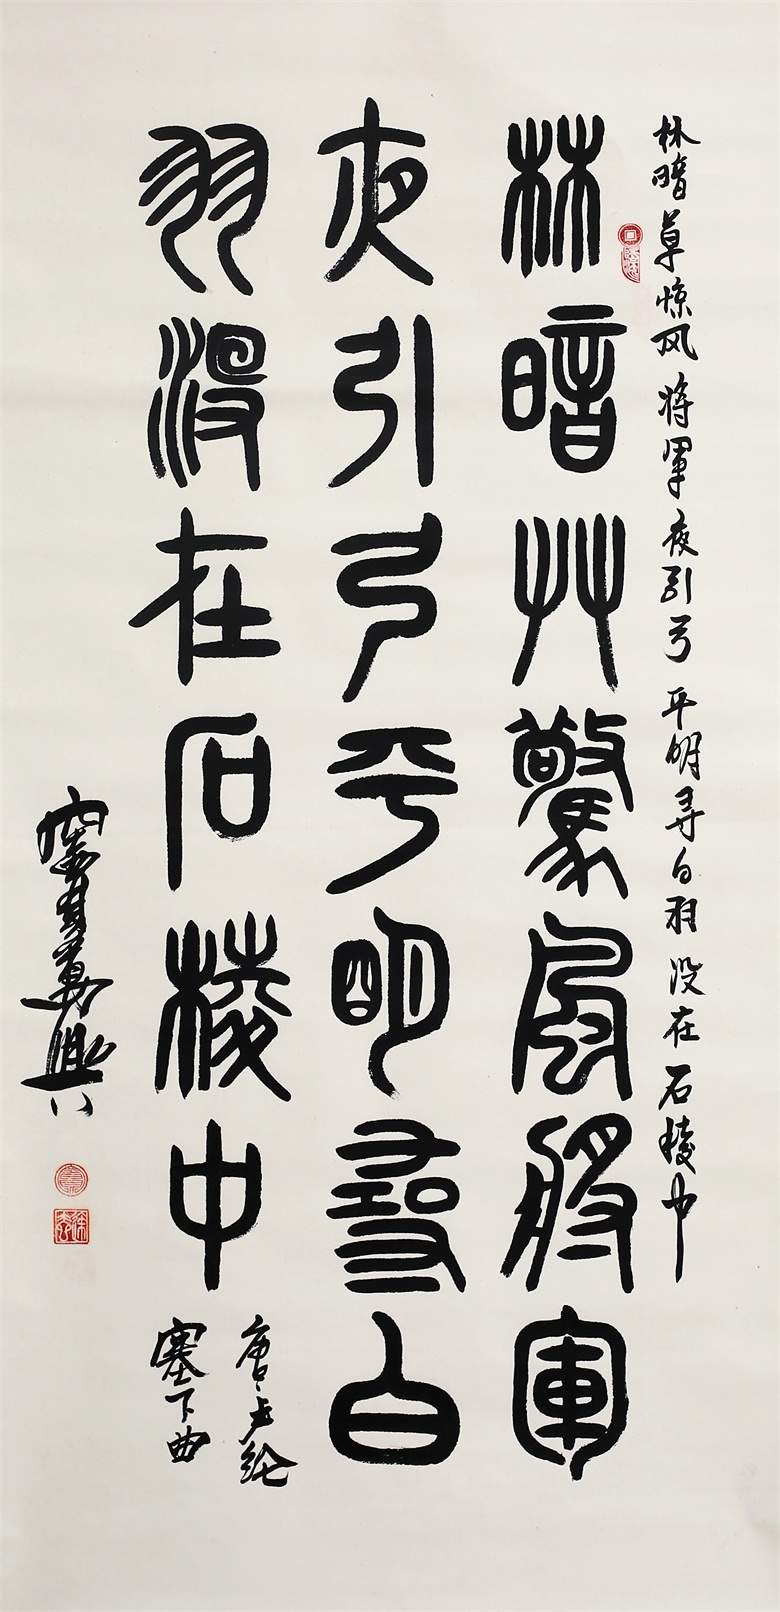 林暗草惊风将軍夜引弓平明寻白羽没在石棱中
林暗艸驚風將軍
夜引弓平明尋白
羽沒在石棱中
唐卢纶
塞下曲